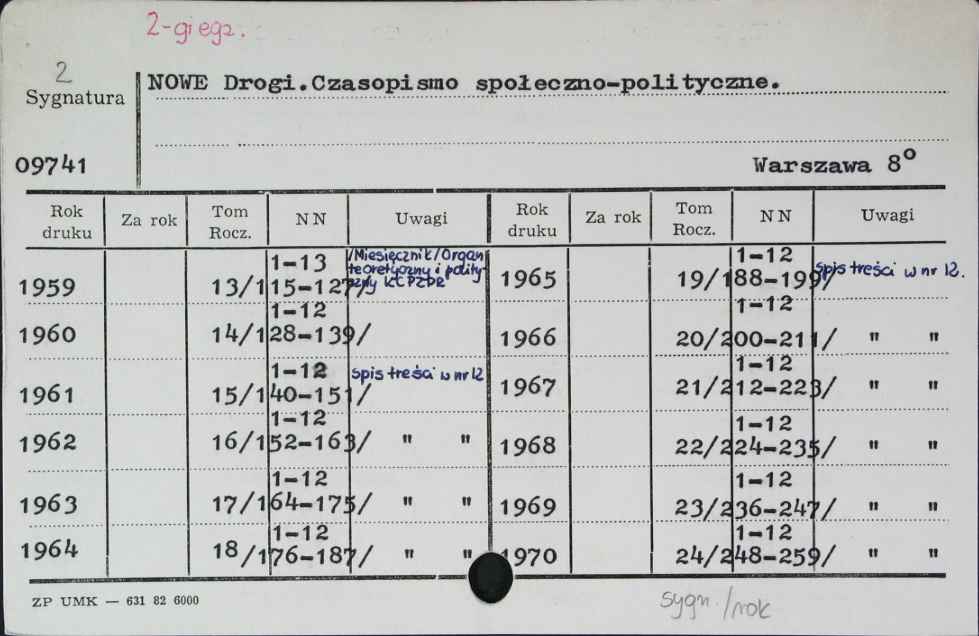 2-gi egz.
2
Sygnatura
NOWE Drogi.Czasopismo społeczno-polityczne.
09741
Warszawa 8º
Rok druku Za rok Tom Rocz. NN Uwagi Rok druku Za rok Tom Rocz. NN Uwagi
1959 13/115-127/ 1-13 /Miesięcznik/Organ teoretyczny i polityczny KC PZPR 1965 19/188-199/ 1-12 spis treści w nr 12.
1960 14/128-139/ 1-12 1966 20/200-211/ 1-12 " "
1961 15/140-151/ 1-12 spis treści w nr 12 1967 21/212-223/ 1-12 " "
1962 16/152-163/ 1-12 " " 1968 22/224-235/ 1-12 " "
1963 17/164-175/ 1-12 " " 1969 23/236-247/ 1-12 " "
1964 18/176-187/ 1-12 " " 1970 24/248-259/ 1-12 " "
ZP UMK — 631 82 6000
sygn./rok